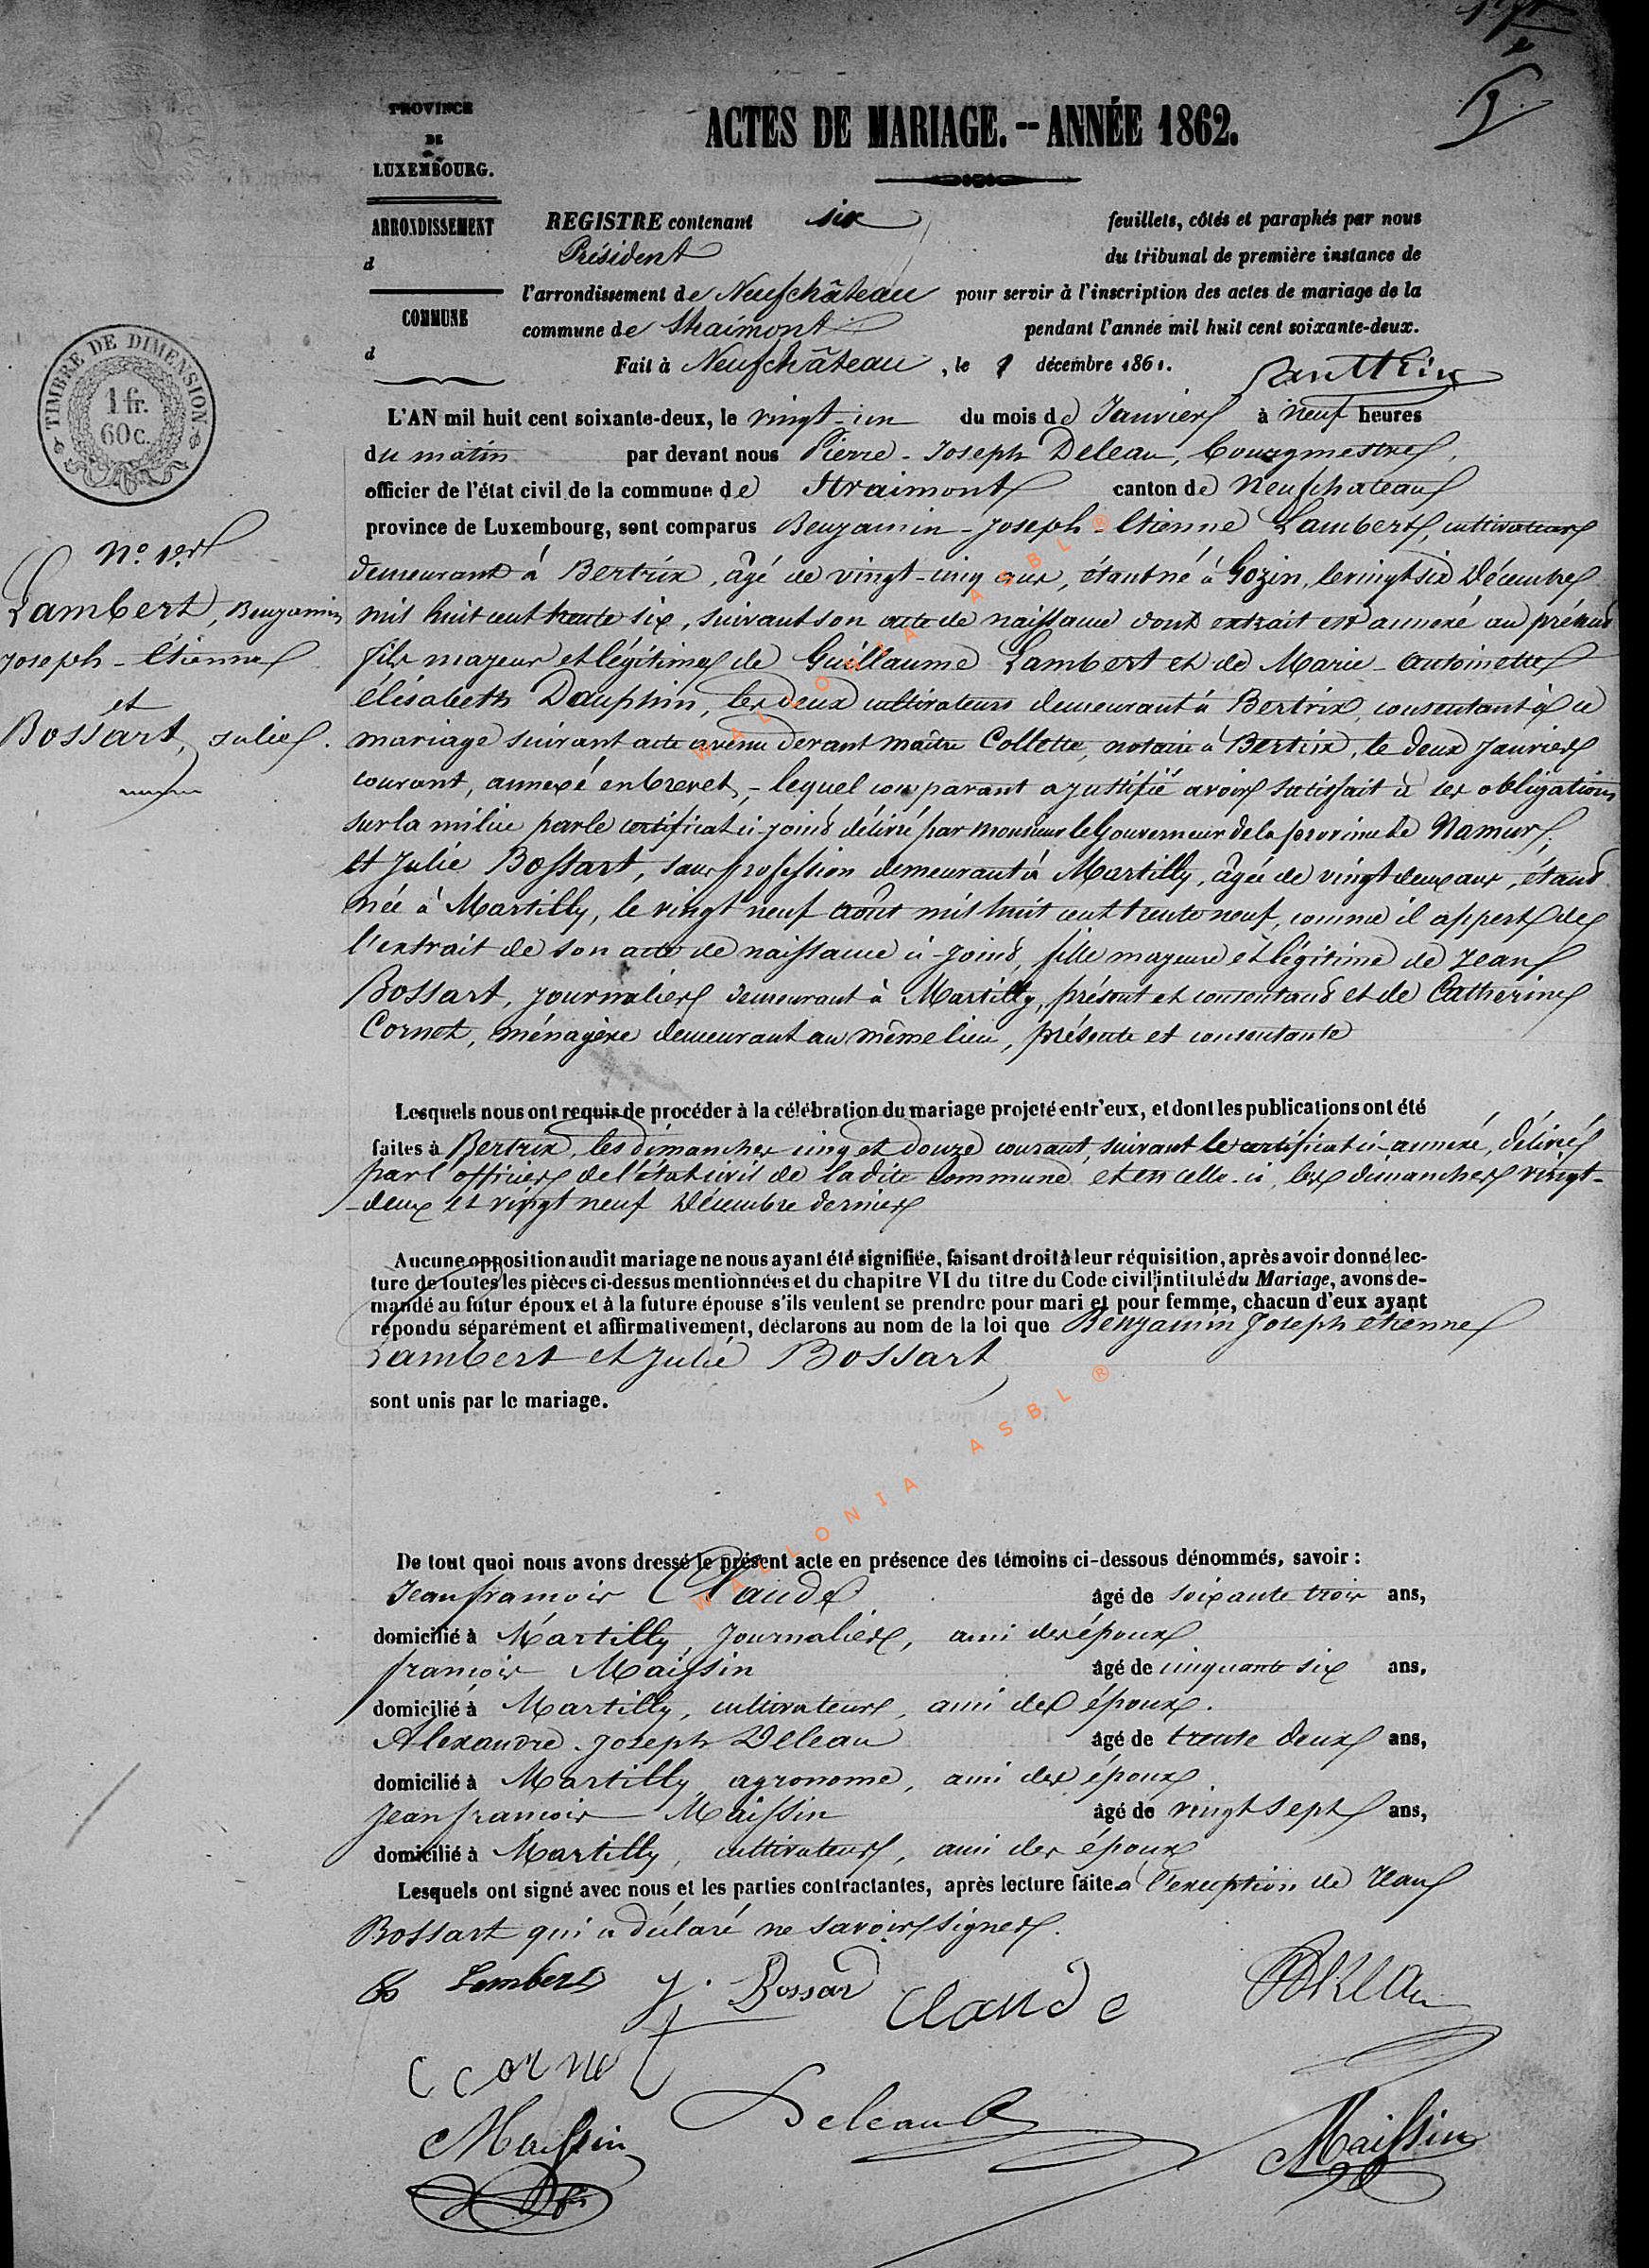 PROVINCE
DE
LUXEMBOURG.
ARRONDISSEMENT
d
COMMUNE
d
ACTES DE MARIAGE. -- ANNÉE 1862.
REGISTRE contenant six feuillets, côtés et paraphés par nous
Président du tribunal de première instance de
l'arrondissement de Neufchâteau pour servir à l'inscription des actes de mariage de la
commune de Straimont pendant l'année mil huit cent soixante-deux.
Fait à Neufchâteau, le décembre 1861.
TIMBRE DE DIMENSION
1 fr.
60 c.
N.° 1.er
Lambert, Benjamin
Joseph-Étienne
et
Bossart, Julie.
L'AN mil huit cent soixante-deux, le vingt-un du mois de Janvier à neuf heures
du matin par devant nous Pierre-Joseph Deleau, bourgmestre,
officier de l'état civil de la commune de Straimont canton de Neufchateau
province de Luxembourg, sont comparus Benjamin-Joseph-Etienne Lambert, cultivateur
demeurant à Bertrix, âgé de vingt-cinq ans, étant né à Gozin, le vingt six Décembre
mil huit cent trente six, suivant son acte de naissance dont extrait est annexé au présent
fils majeur et légitime de Guillaume Lambert et de Marie-Antoinette
élisabeth Dauphin, les deux cultivateurs demeurant à Bertrix, consentant à ce
mariage suivant acte avenu devant maître Collette, notaire à Bertrix, le deux Janvier
courant, annexé en brevet, - lequel comparant a justifié avoir satisfait à ses obligations
sur la milice par le certificat ci-joint délivré par monsieur le Gouverneur de la province de Namur,
et Julie Bossart, sans profession demeurant à Martilly, âgée de vingt deux ans, étant
née à Martilly, le vingt neuf août mil huit cent trente neuf, comme il appert de
l'extrait de son acte de naissance ci-joint, fille majeure et légitime de Jean
Bossart, journalier demeurant à Martilly, présent et consentant et de Catherine
Cornet, ménagère demeurant au même lieu, présente et consentante
Lesquels nous ont requis de procéder à la célébration du mariage projeté entr'eux, et dont les publications ont été
faites à Bertrix, les dimanches cinq et douze courant, suivant le certificat ci-annexé, délivré
par l'officier de l'état civil de la dite commune et en celle-ci, les dimanches vingt-
-deux et vingt neuf Décembre dernier
Aucune opposition audit mariage ne nous ayant été signifiée, faisant droit à leur réquisition, après avoir donné lec-
ture de toutes les pièces ci-dessus mentionnées et du chapitre VI du titre du Code civil, intitulé du Mariage, avons de-
mandé au futur époux et à la future épouse s'ils veulent se prendre pour mari et pour femme, chacun d'eux ayant
répondu séparément et affirmativement, déclarons au nom de la loi que Benjamin Joseph étienne
Lambert et Julie Bossart
sont unis par le mariage.
De tout quoi nous avons dressé le présent acte en présence des témoins ci-dessous dénommés, savoir :
Jean françois Claude âgé de soixante trois ans,
domicilié à Martilly, Journalier, ami des époux
françois Maissin âgé de cinquante six ans,
domicilié à Martilly, cultivateur, ami des époux.
Alexandre-Joseph Deleau âgé de trente deux ans,
domicilié à Martilly agronome, ami des époux
Jean françois Maissin âgé de vingt sept ans,
domicilié à Martilly, cultivateur, ami des époux
Lesquels ont signé avec nous et les parties contractantes, après lecture faite à l'exception de Jean
Bossart qui a déclaré ne savoir signer.
Lambert J. Bossar Claude
C Cornet
Maissin Deleau Maissin
WALLONIA ASBL ®
WALLONIA ASBL ®